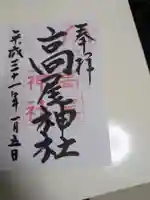 奉拝
高尾神社
平成三十一年一月五日